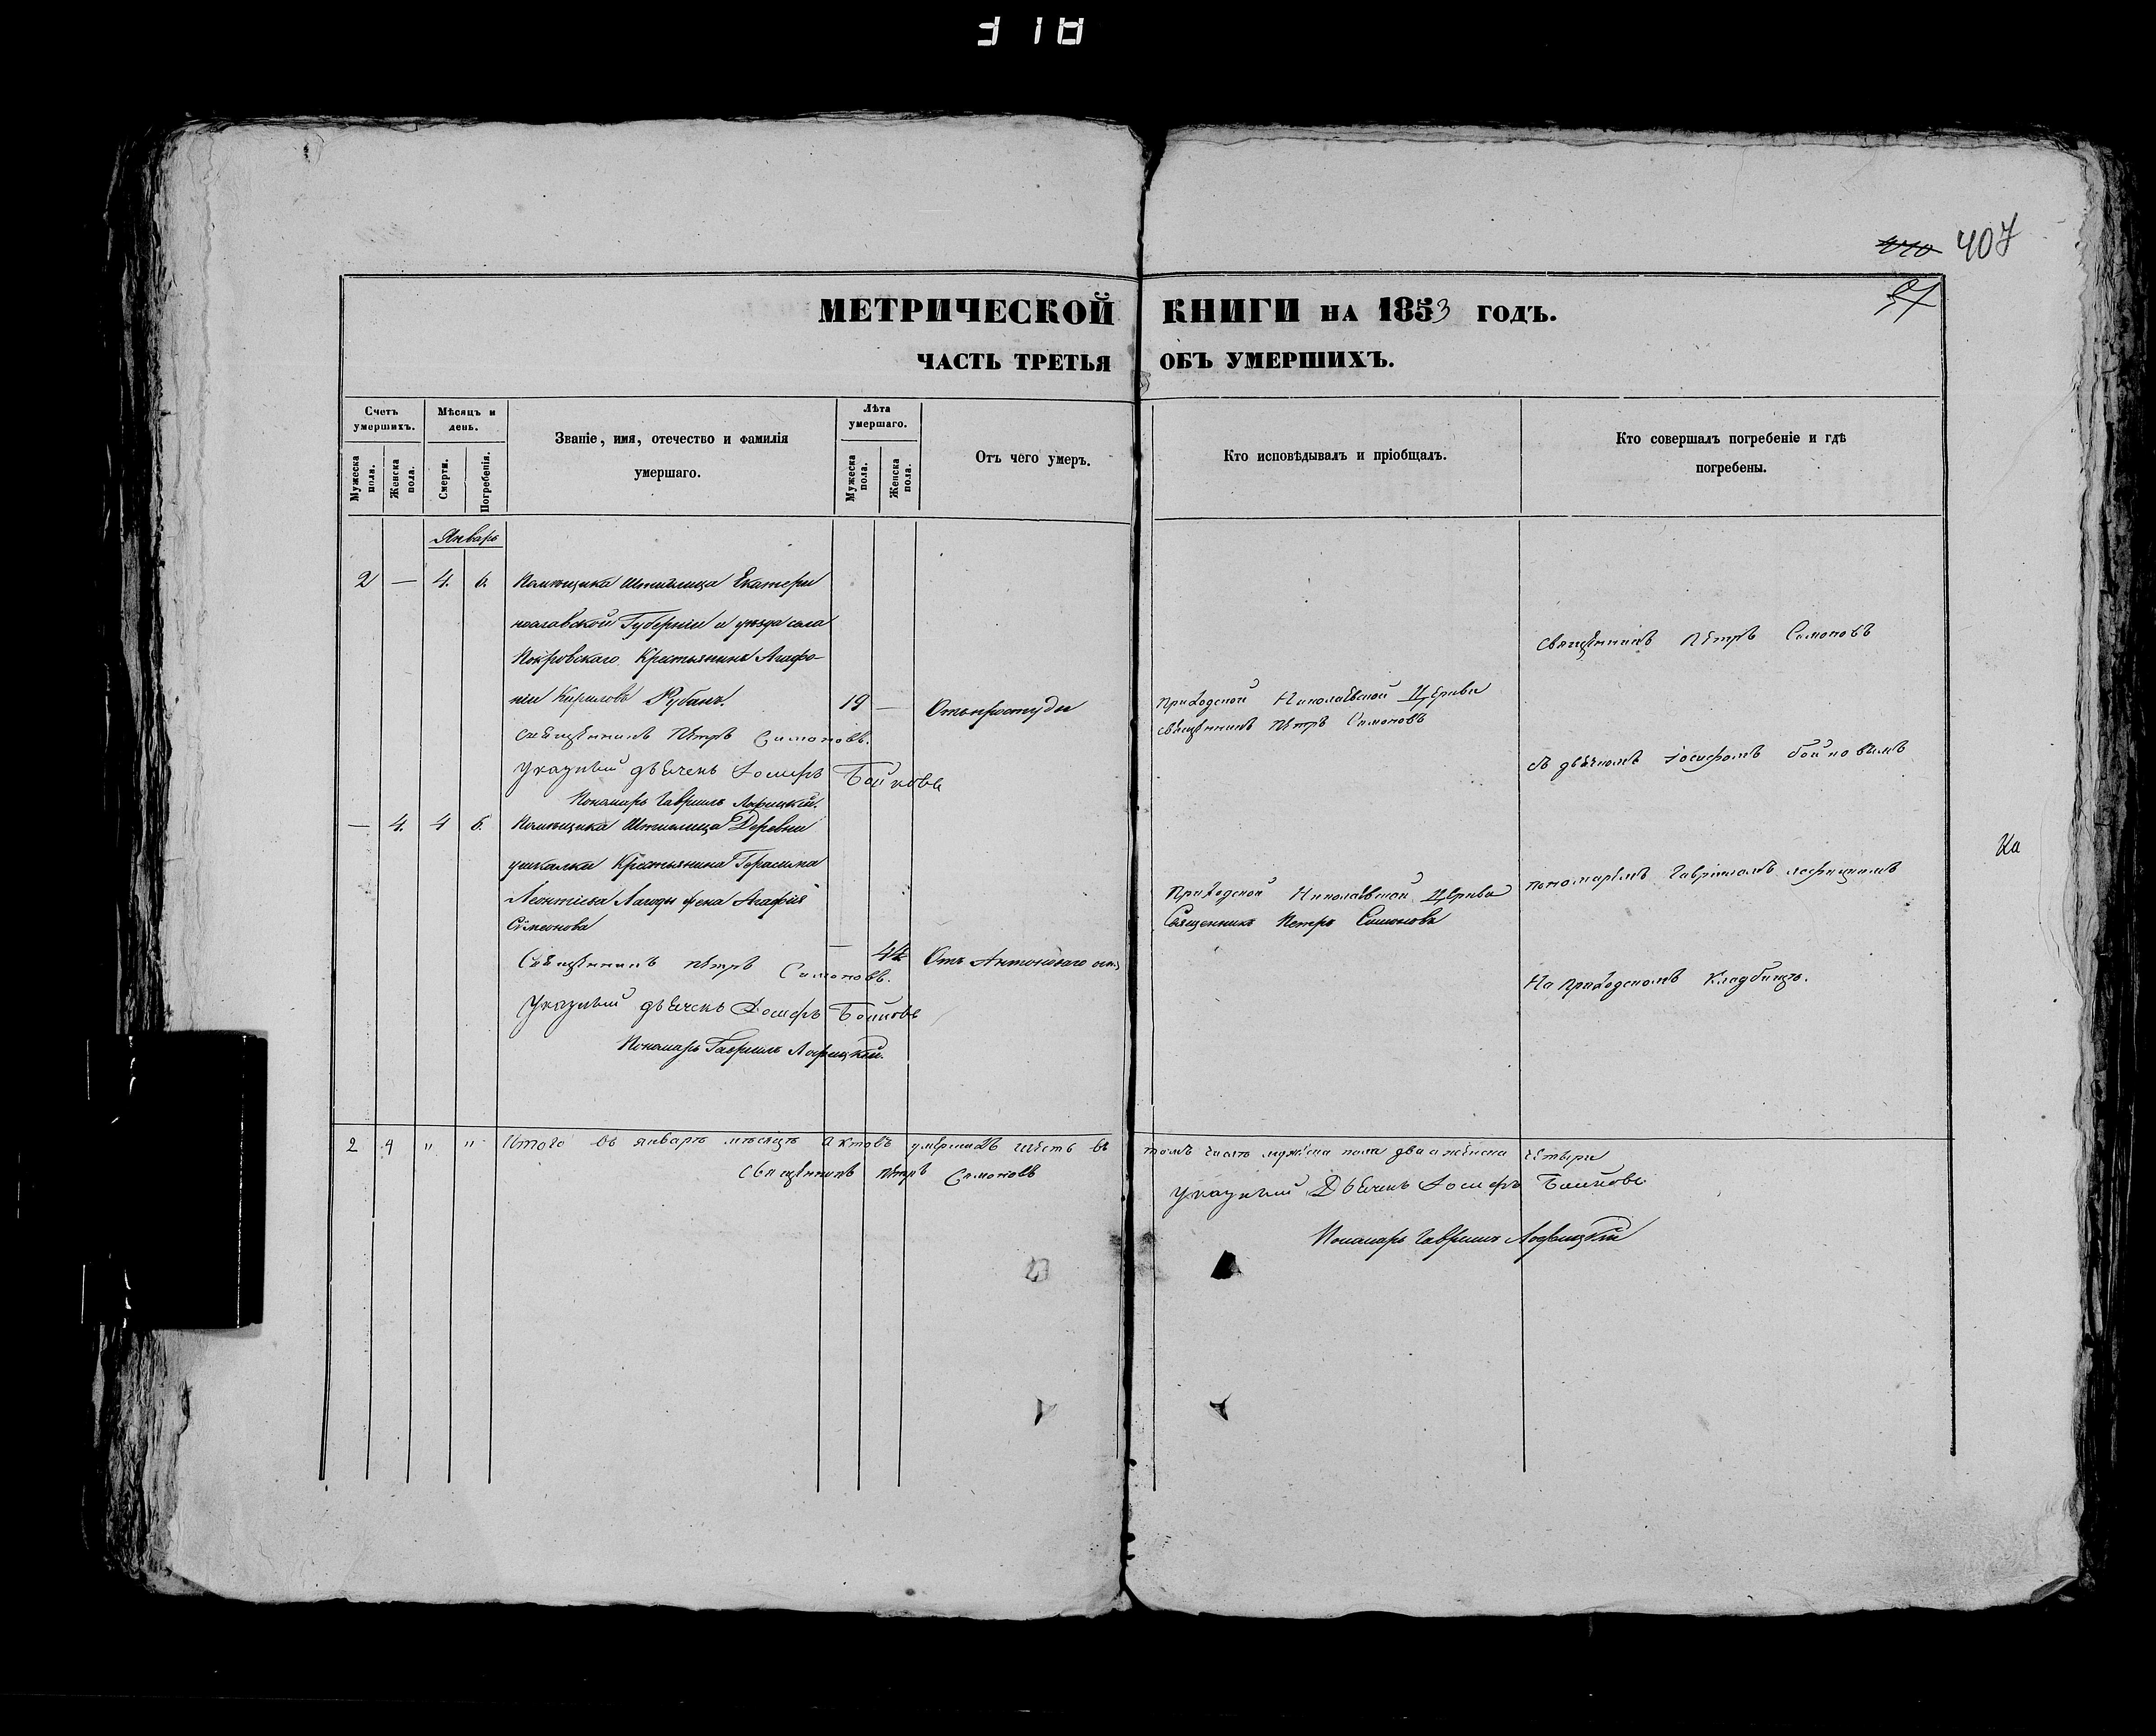 318
407
37
МЕТРИЧЕСКОЙ КНИГИ НА 1853 ГОДЪ.
ЧАСТЬ ТРЕТЬЯ ОБЪ УМЕРШИХЪ.
Счетъ умершихъ.
Мужеска пола.
Женска пола.
Мѣсяцъ и день.
Смерти.
Погребенія.
Званіе, имя, отечество и фамилія
умершаго.
Лѣта умершаго.
Мужеска пола.
Женска пола.
Отъ чего умеръ.
Кто исповѣдывалъ и пріобщалъ.
Кто совершалъ погребеніе и гдѣ
погребены.
Январь
2 — 4. 6. Помѣщика Екатери
нославской Губерніи и уѣзда села
Покровскаго Крестьянинъ Агафо-
ній Кириловъ Рубанъ. 19 — Отъ простуды
священникъ Петръ Симоновъ.
Указный дьячекъ Іосифъ Бойковъ
Пономарь Гавріилъ
Приходской Николаевской Церкви
священникъ Петръ Симоновъ
— 4. 4 6. Помѣщика Деревни
Крестьянина Герасима
Леонтіева жена Агафія
Симеонова
— 44 Отъ Антоніеваго огня
Священникъ Петръ Симоновъ.
Указный дьячекъ Іосифъ Бойковъ
Пономарь Гавріилъ
Приходской Николаевской Церкви
Священникъ Петръ Симоновъ
Священникъ Петръ Симоновъ
съ дьячкомъ Іосифомъ Бойковымъ
пономаремъ Гавріиломъ
На приходскомъ кладбищѣ.
2 4 " " Итого въ январѣ мѣсяцѣ актовъ умершихъ шесть въ томъ числѣ мужеска пола два а женска четыре
священникъ Петръ Симоновъ
Указный Дьячекъ Іосифъ Бойковъ
Пономарь Гавріилъ